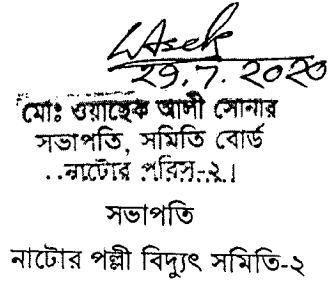 29.7.2020
মোঃ ওয়াছেক আলী সোনার
সভাপতি, সমিতি বোর্ড
নাটোর পবিস-২।
সভাপতি
নাটোর পল্লী বিদ্যুৎ সমিতি-২